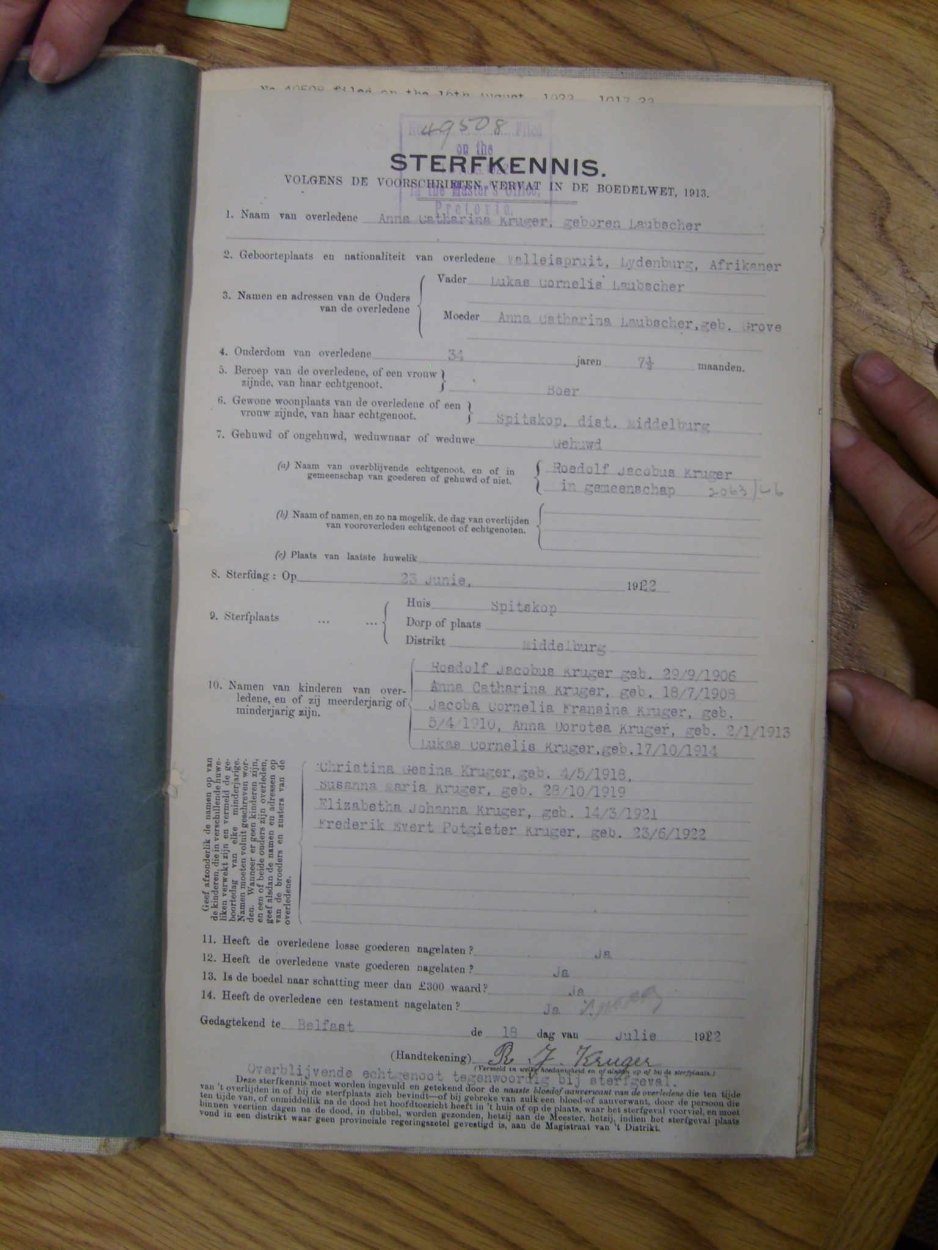 No 49508 filed on the 10th August 1922
49508
on the
In the Master's Office,
Pretoria.
STERFKENNIS.
VOLGENS DE VOORSCHRIFTEN VERVAT IN DE BOEDELWET, 1913.
1. Naam van overledene Anna Catharina Kruger, geboren Laubscher
2. Geboorteplaats en nationaliteit van overledene Valleispruit, Lydenburg, Afrikaner
3. Namen en adressen van de Ouders van de overledene
Vader Lukas Cornelis Laubscher
Moeder Anna Catharina Laubscher, geb. Grove
4. Ouderdom van overledene 34 jaren 7½ maanden.
5. Beroep van de overledene, of een vrouw zijnde, van haar echtgenoot. Boer
6. Gewone woonplaats van de overledene of een vrouw zijnde, van haar echtgenoot. Spitskop, dist. Middelburg
7. Gehuwd of ongehuwd, weduwnaar of weduwe Gehuwd
(a) Naam van overblijvende echtgenoot, en of in gemeenschap van goederen of gehuwd of niet.
Roedolf Jacobus Kruger
in gemeenschap
(b) Naam of namen, en zo na mogelik, de dag van overlijden van vooroverleden echtgenoot of echtgenoten.
(c) Plaats van laatste huwelik
8. Sterfdag: Op 23 Junie, 1922
9. Sterfplaats ... ...
Huis Spitskop
Dorp of plaats
Distrikt Middelburg
10. Namen van kinderen van overledene, en of zij meerderjarig of minderjarig zijn.
Roedolf Jacobus Kruger geb. 29/9/1906
Anna Catharina Kruger, geb. 18/7/1908
Jacoba Cornelia Fransina Kruger, geb.
5/4/1910, Anna Dorotea Kruger, geb. 2/1/1913
Lukas Cornelis Kruger, geb. 17/10/1914
Christina Gesina Kruger, geb. 4/5/1918,
Susanna Maria Kruger, geb. 28/10/1919
Elizabetha Johanna Kruger, geb. 14/3/1921
Frederik Evert Potgieter Kruger, geb. 23/6/1922
Geef afzonderlik de namen op van
de kinderen, die in verschillende huwe-
liken verwekt zijn en vermeld de ge-
boortedag van elke minderjarige.
Namen moeten voluit geschreven wor-
den. Wanneer er geen kinderen zijn,
en een of beide ouders zijn overleden,
geef alsdan de namen en adressen op
van de broeders en zusters van de
overledene.
11. Heeft de overledene losse goederen nagelaten? Ja
12. Heeft de overledene vaste goederen nagelaten? Ja
13. Is de boedel naar schatting meer dan £300 waard? Ja
14. Heeft de overledene een testament nagelaten? Ja
Gedagtekend te Belfast de 18 dag van Julie 1922
(Handtekening) R J Kruger
(Vermeld in welke hoedanigheid en of aanwezig bij de sterfplaats.)
Overblijvende echtgenoot tegenwoordig bij sterfgeval.
Deze sterfkennis moet worden ingevuld en getekend door de naaste bloedof aanverwant van de overledene die ten tijde
van 't overlijden in of bij de sterfplaats zich bevindt—of bij gebreke van zulk een bloed-of aanverwant, door de persoon die
ten tijde van, of onmiddellik na de dood het hoofdtoezicht heeft in 't huis of op de plaats, waar het sterfgeval voorviel, en moet
binnen veertien dagen na de dood, in dubbel, worden gezonden, hetzij aan de Meester, hetzij, indien het sterfgeval plaats
vond in een distrikt waar geen provinciale regeringszetel gevestigd is, aan de Magistraat van 't Distrikt.